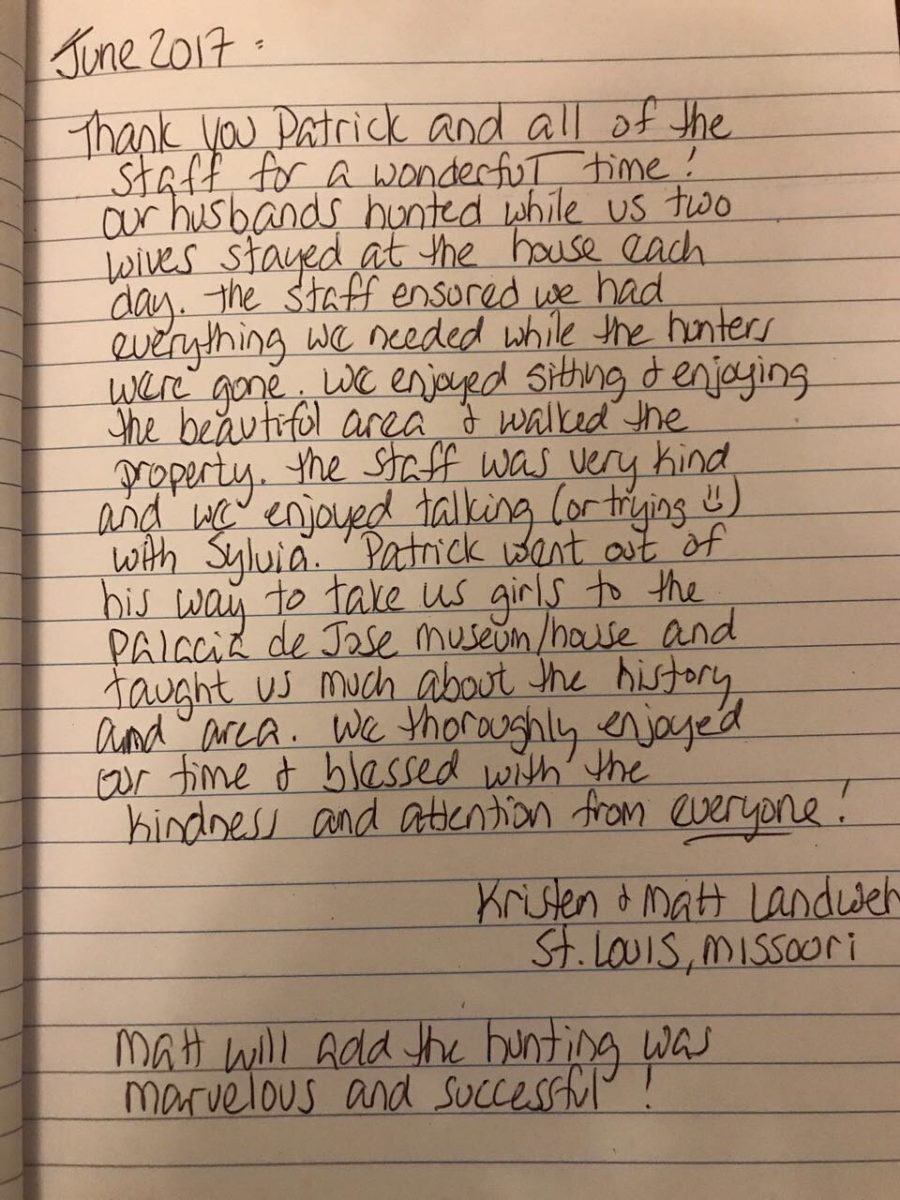 June 2017:
Thank you Patrick and all of the
staff for a wonderful time!
our husbands hunted while us two
wives stayed at the house each
day. the staff ensured we had
everything we needed while the hunters
were gone. We enjoyed sitting & enjoying
the beautiful area & walked the
property. the staff was very kind
and we enjoyed talking (or trying ☺)
with Sylvia. Patrick went out of
his way to take us girls to the
Palacia de Jose museum/house and
taught us much about the history
and area. We thoroughly enjoyed
our time & blessed with the
kindness and attention from everyone!
Kristen & Matt Landweh
St. Louis, Missouri
Matt will add the hunting was
marvelous and successful!